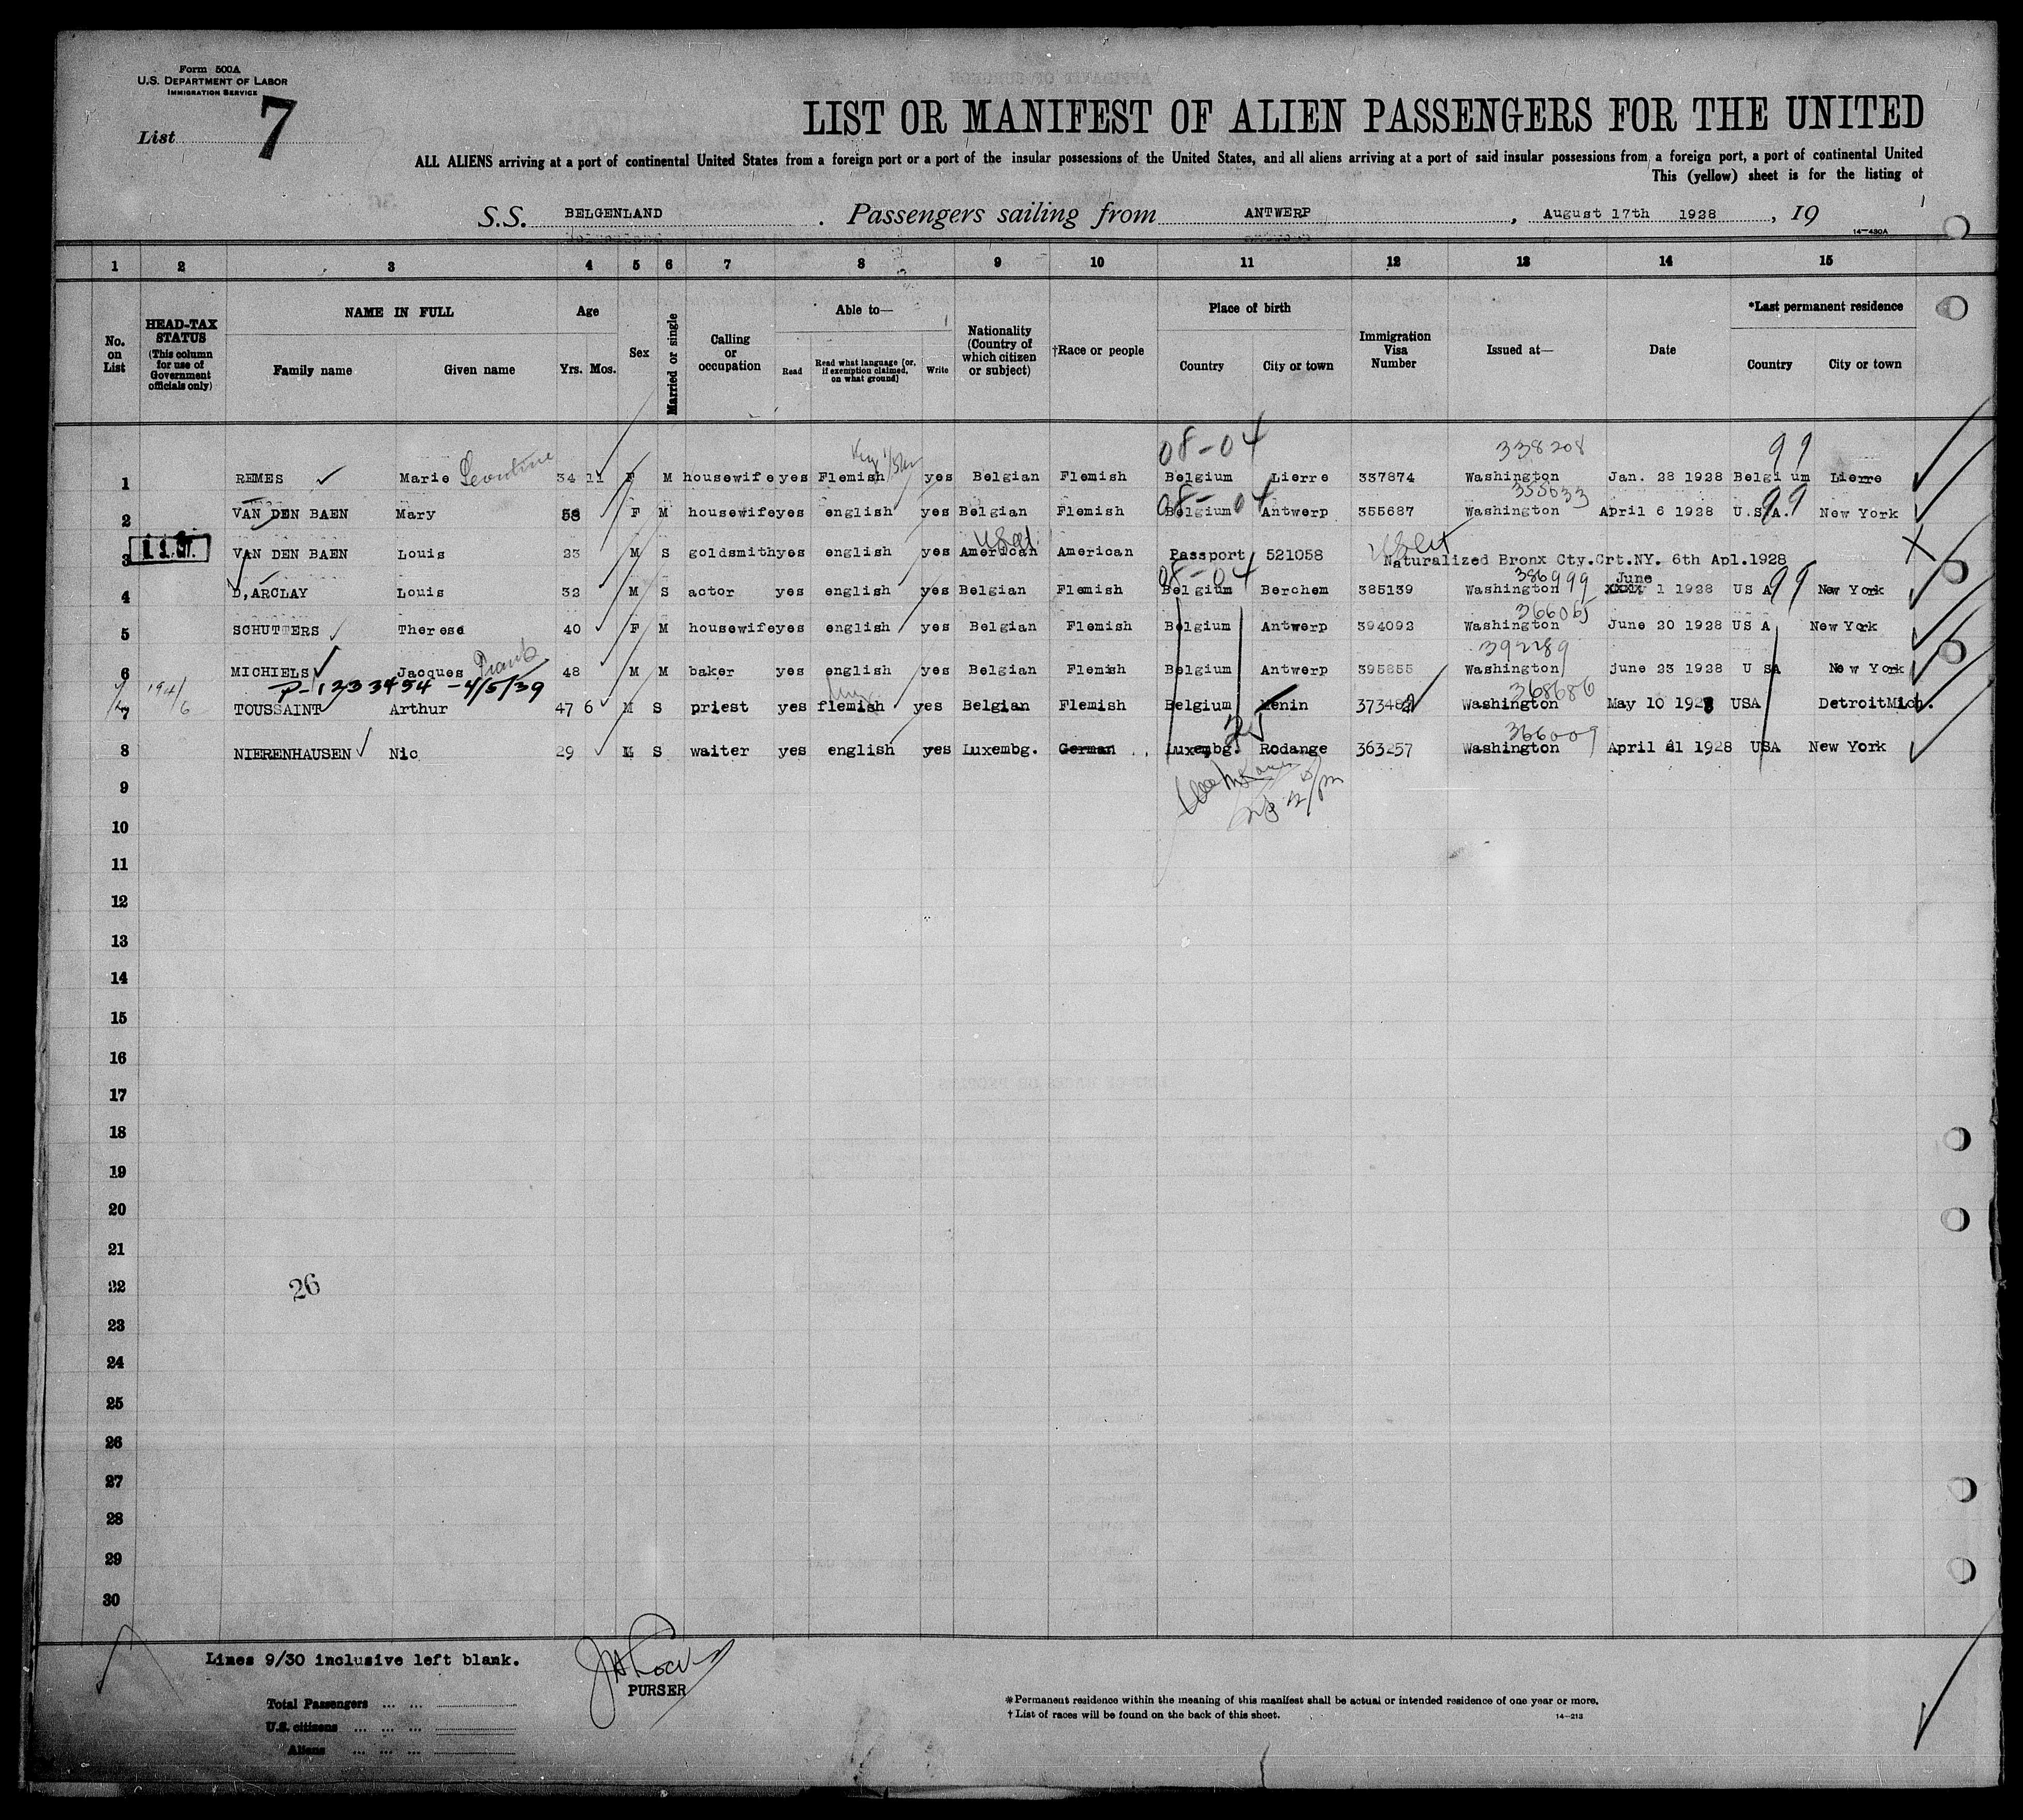 Form 500A
U.S. DEPARTMENT OF LABOR
IMMIGRATION SERVICE
List 7
LIST OR MANIFEST OF ALIEN PASSENGERS FOR THE UNITED
ALL ALIENS arriving at a port of continental United States from a foreign port or a port of the insular possessions of the United States, and all aliens arriving at a port of said insular possessions from a foreign port, a port of continental United
This (yellow) sheet is for the listing of
S.S. BELGENLAND . Passengers sailing from ANTWERP , August 17th 1928 , 19
14-430A
1 2 3 4 5 6 7 8 9 10 11 12 13 14 15
No. on List
HEAD-TAX STATUS (This column for use of Government officials only)
NAME IN FULL
Family name Given name
Age
Yrs. Mos.
Sex
Married or single
Calling or occupation
Able to—
Read Read what language (or, if exemption claimed, on what ground) Write
Nationality (Country of which citizen or subject)
†Race or people
Place of birth
Country City or town
Immigration Visa Number
Issued at—
Date
*Last permanent residence
Country City or town
08-04 338208 99
1 REMES Marie Leontine 34 11 F M housewife yes Flemish yes Belgian Flemish Belgium Lierre 337874 Washington Jan. 28 1928 Belgium Lierre
08-04 355633 99
2 VAN DEN BAEN Mary 58 F M housewife yes english yes Belgian Flemish Belgium Antwerp 355687 Washington April 6 1928 U.S.A. New York
3 VAN DEN BAEN Louis 23 M S goldsmith yes english yes American American Passport 521058 Naturalized Bronx Cty.Crt.NY. 6th Apl.1928
08-04 386999 June 99
4 D,ARCLAY Louis 32 M S actor yes english yes Belgian Flemish Belgium Berchem 385139 Washington XXXX 1 1928 US A New York
366065
5 SCHUTTERS Therese 40 F M housewife yes english yes Belgian Flemish Belgium Antwerp 394092 Washington June 20 1928 US A New York
392289
6 MICHIELS Jacques Frank 48 M M baker yes english yes Belgian Flemish Belgium Antwerp 395855 Washington june 23 1928 U SA New York
P-1233454 -4/5/39 368686
7 TOUSSAINT Arthur 47 6 M S priest yes flemish yes Belgian Flemish Belgium 373482 Washington May 10 1928 USA Detroit Mich.
25 366009
8 NIERENHAUSEN Nic 29 M S waiter yes english yes Luxembg. German Luxembg. Rodange 363257 Washington April 21 1928 USA New York
9
10
11
12
13
14
15
16
17
18
19
20
21
22
26
23
24
25
26
27
28
29
30
Lines 9/30 inclusive left blank.
PURSER
Total Passengers ... ...
U.S. citizens ... ... ...
Aliens ... ... ...
*Permanent residence within the meaning of this manifest shall be actual or intended residence of one year or more.
†List of races will be found on the back of this sheet.
14-213